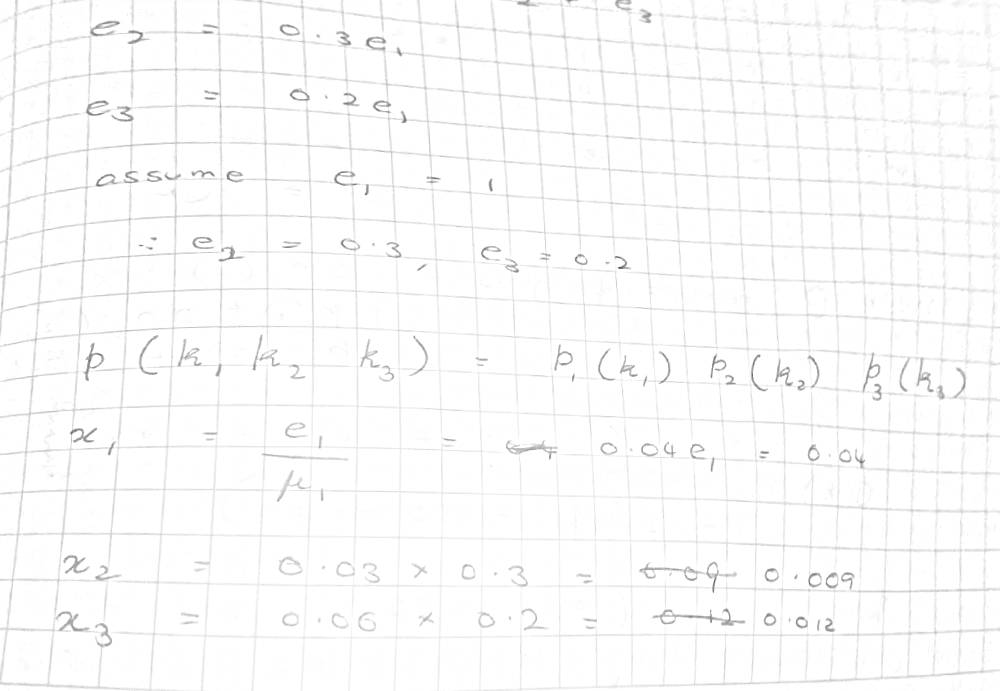 e₃
e₂ = 0.3e₁
e₃ = 0.2e₁
assume e₁ = 1
∴ e₂ = 0.3, e₃ = 0.2
p (k₁ k₂ k₃) = p₁ (k₁) p₂ (k₂) p₃ (k₃)
x₁ = e₁/μ₁ = 0.04e₁ = 0.04
x₂ = 0.03 × 0.3 = 0.09 0.009
x₃ = 0.06 × 0.2 = 0.12 0.012